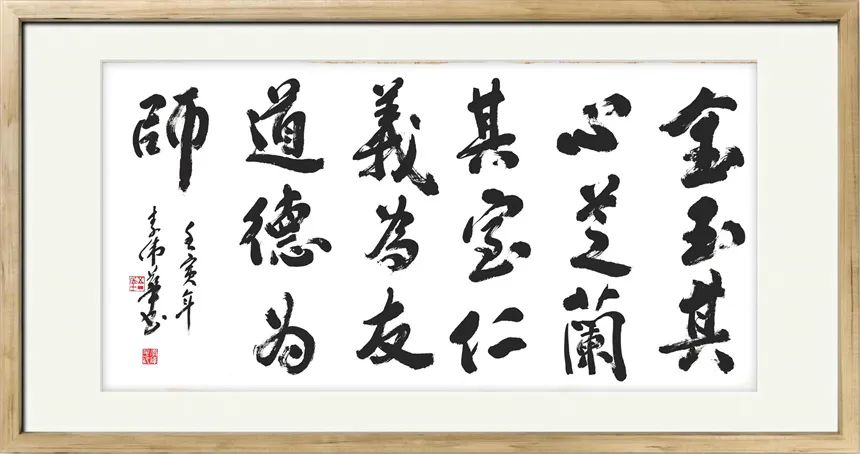 金玉其
心芝蘭
其室仁
義為友
道德为
師
壬寅年